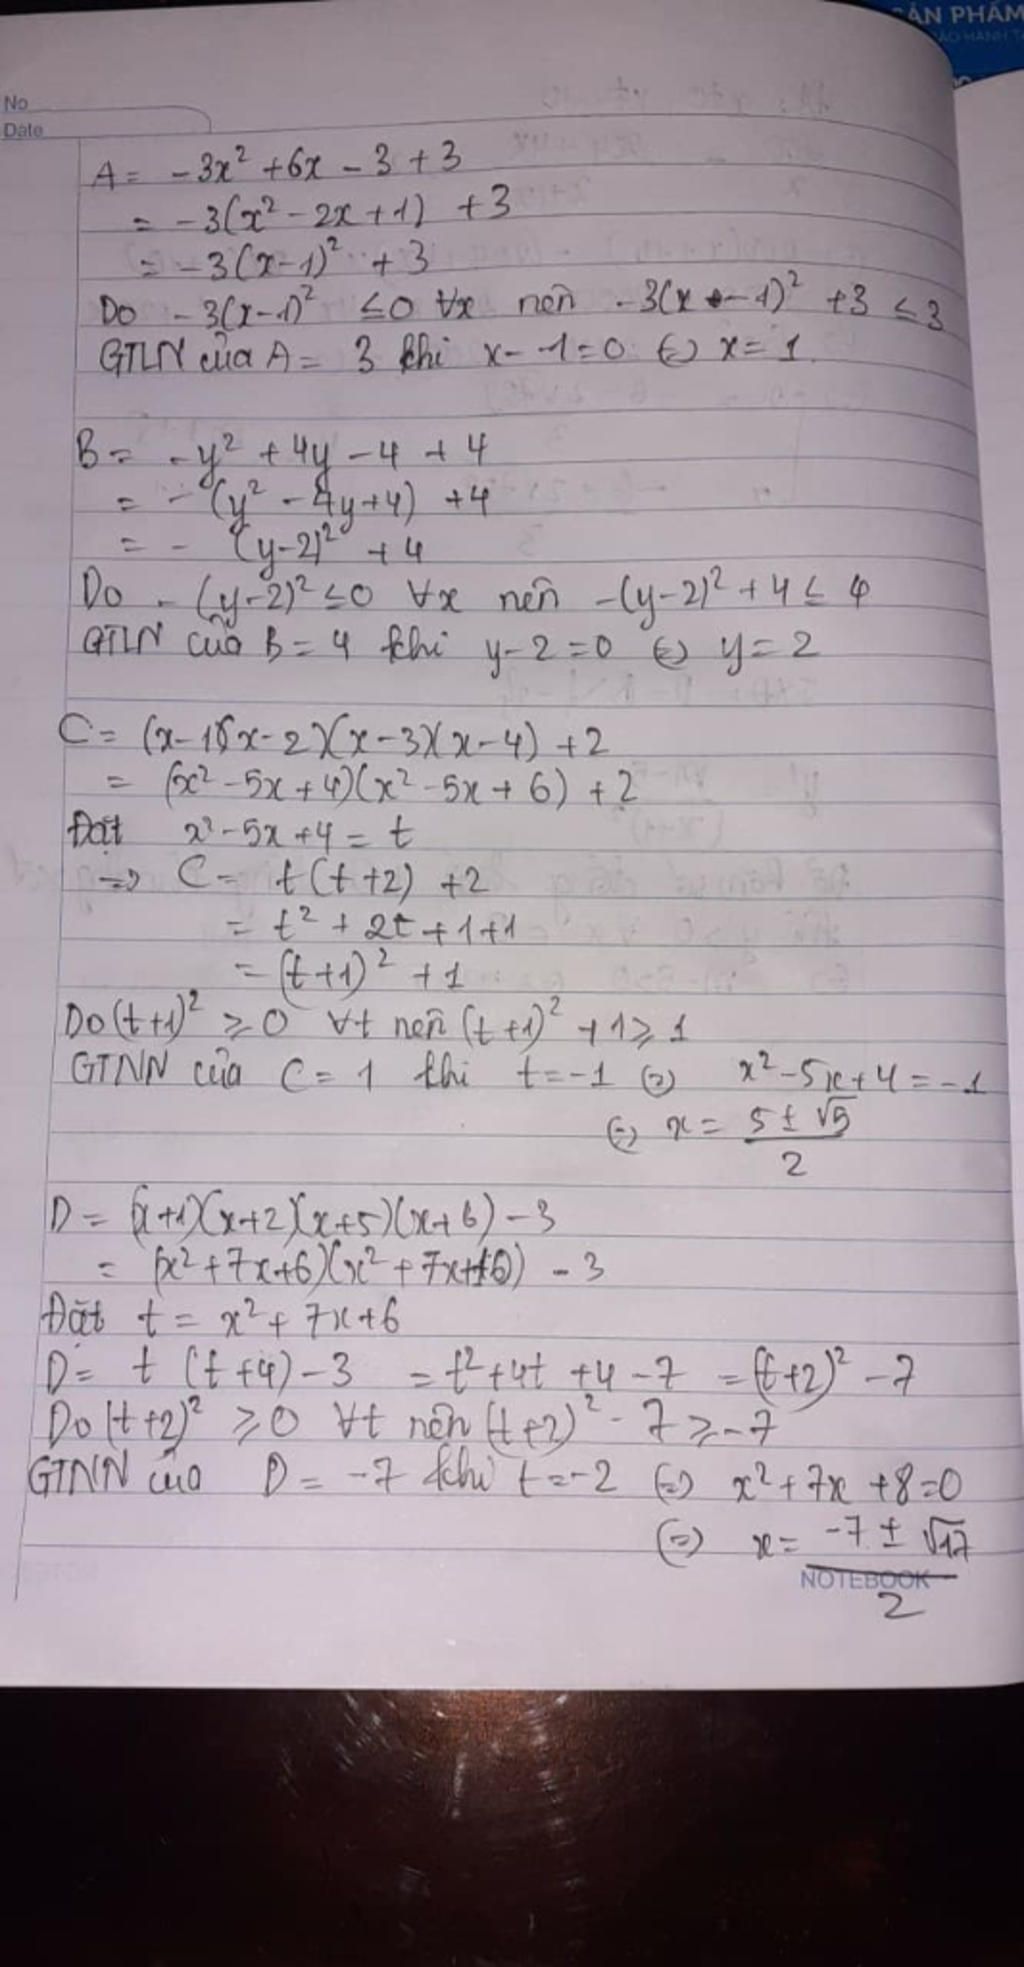 ẢN PHẨM
BẢO HÀNH
No
Date
A = -3x² + 6x - 3 + 3
= -3(x² - 2x + 1) + 3
= -3(x-1)² + 3
Do -3(x-1)² ≤ 0 ∀x nên -3(x-1)² + 3 ≤ 3
GTLN của A = 3 khi x - 1 = 0 ⇔ x = 1.
B = -y² + 4y - 4 + 4
= -(y² - 4y + 4) + 4
= - (y-2)² + 4
Do -(y-2)² ≤ 0 ∀x nên -(y-2)² + 4 ≤ 4
GTLN của B = 4 khi y - 2 = 0 ⇔ y = 2
C = (x-1)(x-2)(x-3)(x-4) + 2
= (x² - 5x + 4)(x² - 5x + 6) + 2
Đặt x² - 5x + 4 = t
=> C = t(t+2) + 2
= t² + 2t + 1 + 1
= (t+1)² + 1
Do (t+1)² ≥ 0 ∀t nên (t+1)² + 1 ≥ 1
GTNN của C = 1 khi t = -1 ⇔ x² - 5x + 4 = -1
⇔ x = (5 ± √5)/2
D = (x+1)(x+2)(x+5)(x+6) - 3
= (x² + 7x + 6)(x² + 7x + 10) - 3
Đặt t = x² + 7x + 6
D = t(t+4) - 3 = t² + 4t + 4 - 7 = (t+2)² - 7
Do (t+2)² ≥ 0 ∀t nên (t+2)² - 7 ≥ -7
GTNN của D = -7 khi t = -2 ⇔ x² + 7x + 8 = 0
⇔ x = (-7 ± √17)/2
NOTEBOOK